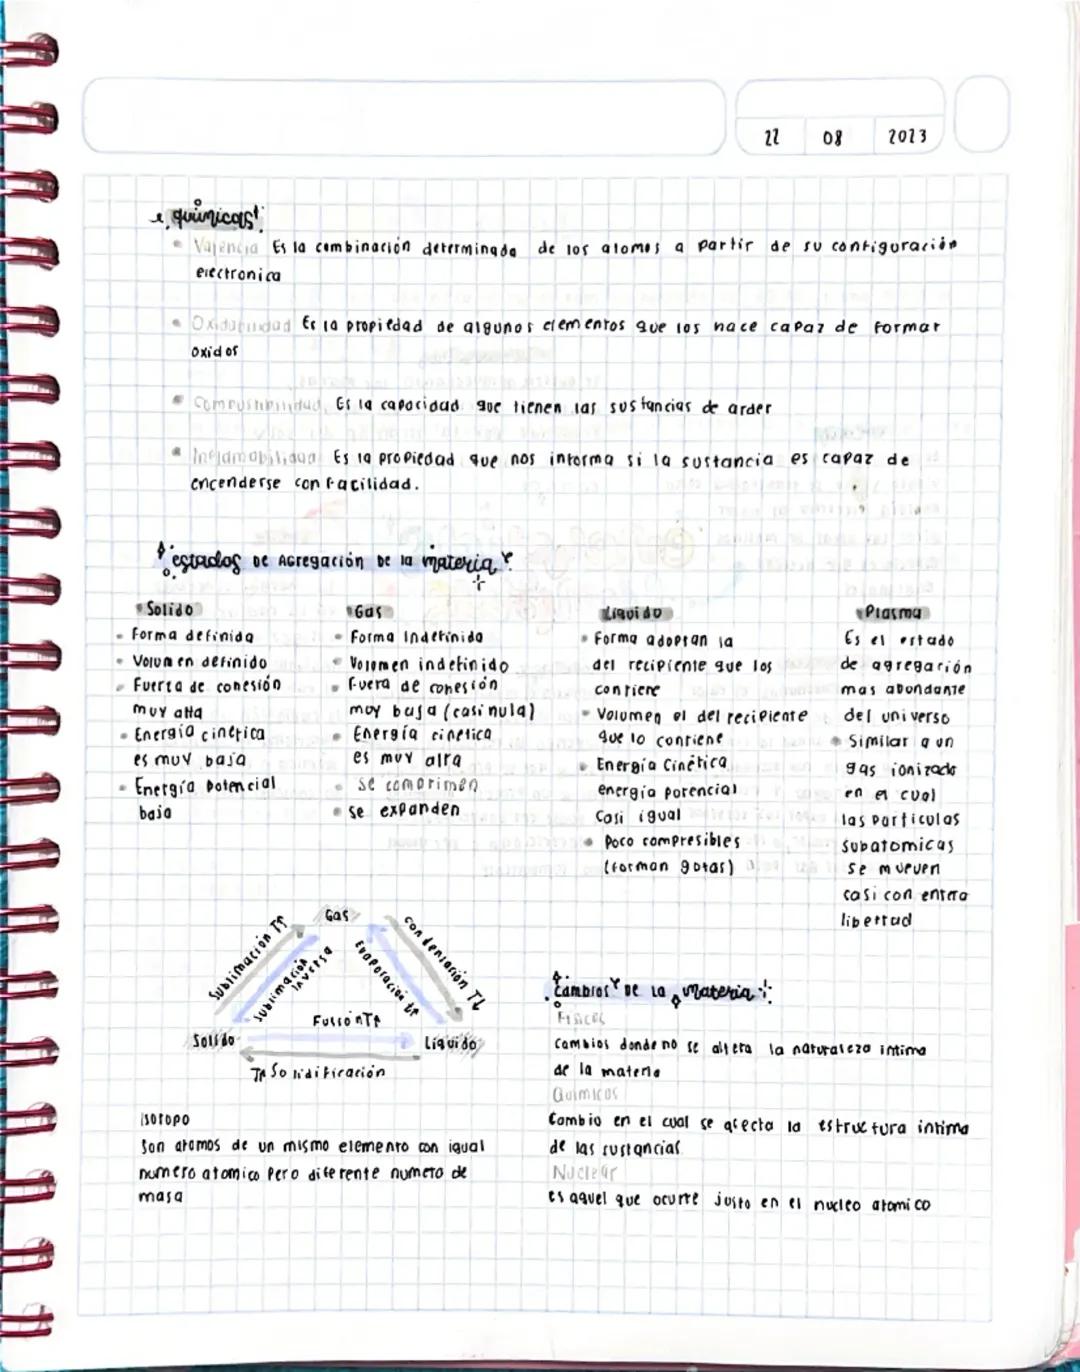 22 08 2023
químicas
Valencia Es la combinación determinada de los atomos a partir de su configuración
electronica
Oxidabilidad Es la propiedad de algunos elementos que los hace capaz de formar
oxidos
Combustibilidad Es la capacidad que tienen las sustancias de arder
Inflamabilidad Es la propiedad que nos informa si la sustancia es capaz de
encenderse con facilidad.
estados De Agregación De la materia
Solido
Forma definida
Volumen definido
Fuerza de cohesión
muy alta
Energía cinetica
es muy baja
Energía potencial
baja
Gas
Forma Indefinida
Volumen indefinido
Fuera de cohesión
muy baja (casi nula)
Energía cinetica
es muy alta
Se comprimen
Se expanden
Liquido
Forma adoptan la
del recipiente que los
contiene
Volumen el del recipiente
que lo contiene
Energía Cinética
energía potencial
Casi igual
Poco compresibles
(forman gotas)
Plasma
Es el estado
de agregación
mas abundante
del universo
Similar a un
gas ionizado
en el cual
las particulas
subatomicas
se mueven
casi con entera
libertad
Gas
Sublimación T↑
Sublimación
inversa
Evaporación t↑
Condensación T↓
Solido
Fusión T↑
Liquido
T↑ Solidificación
Isotopo
Son atomos de un mismo elemento con igual
numero atomico Pero diferente numero de
masa
Cambios De la materia
Fisicos
Cambios donde no se altera la naturaleza intima
de la materia
Quimicos
Cambio en el cual se afecta la estructura intima
de las sustancias
Nuclear
es aquel que ocurre justo en el nucleo atomico